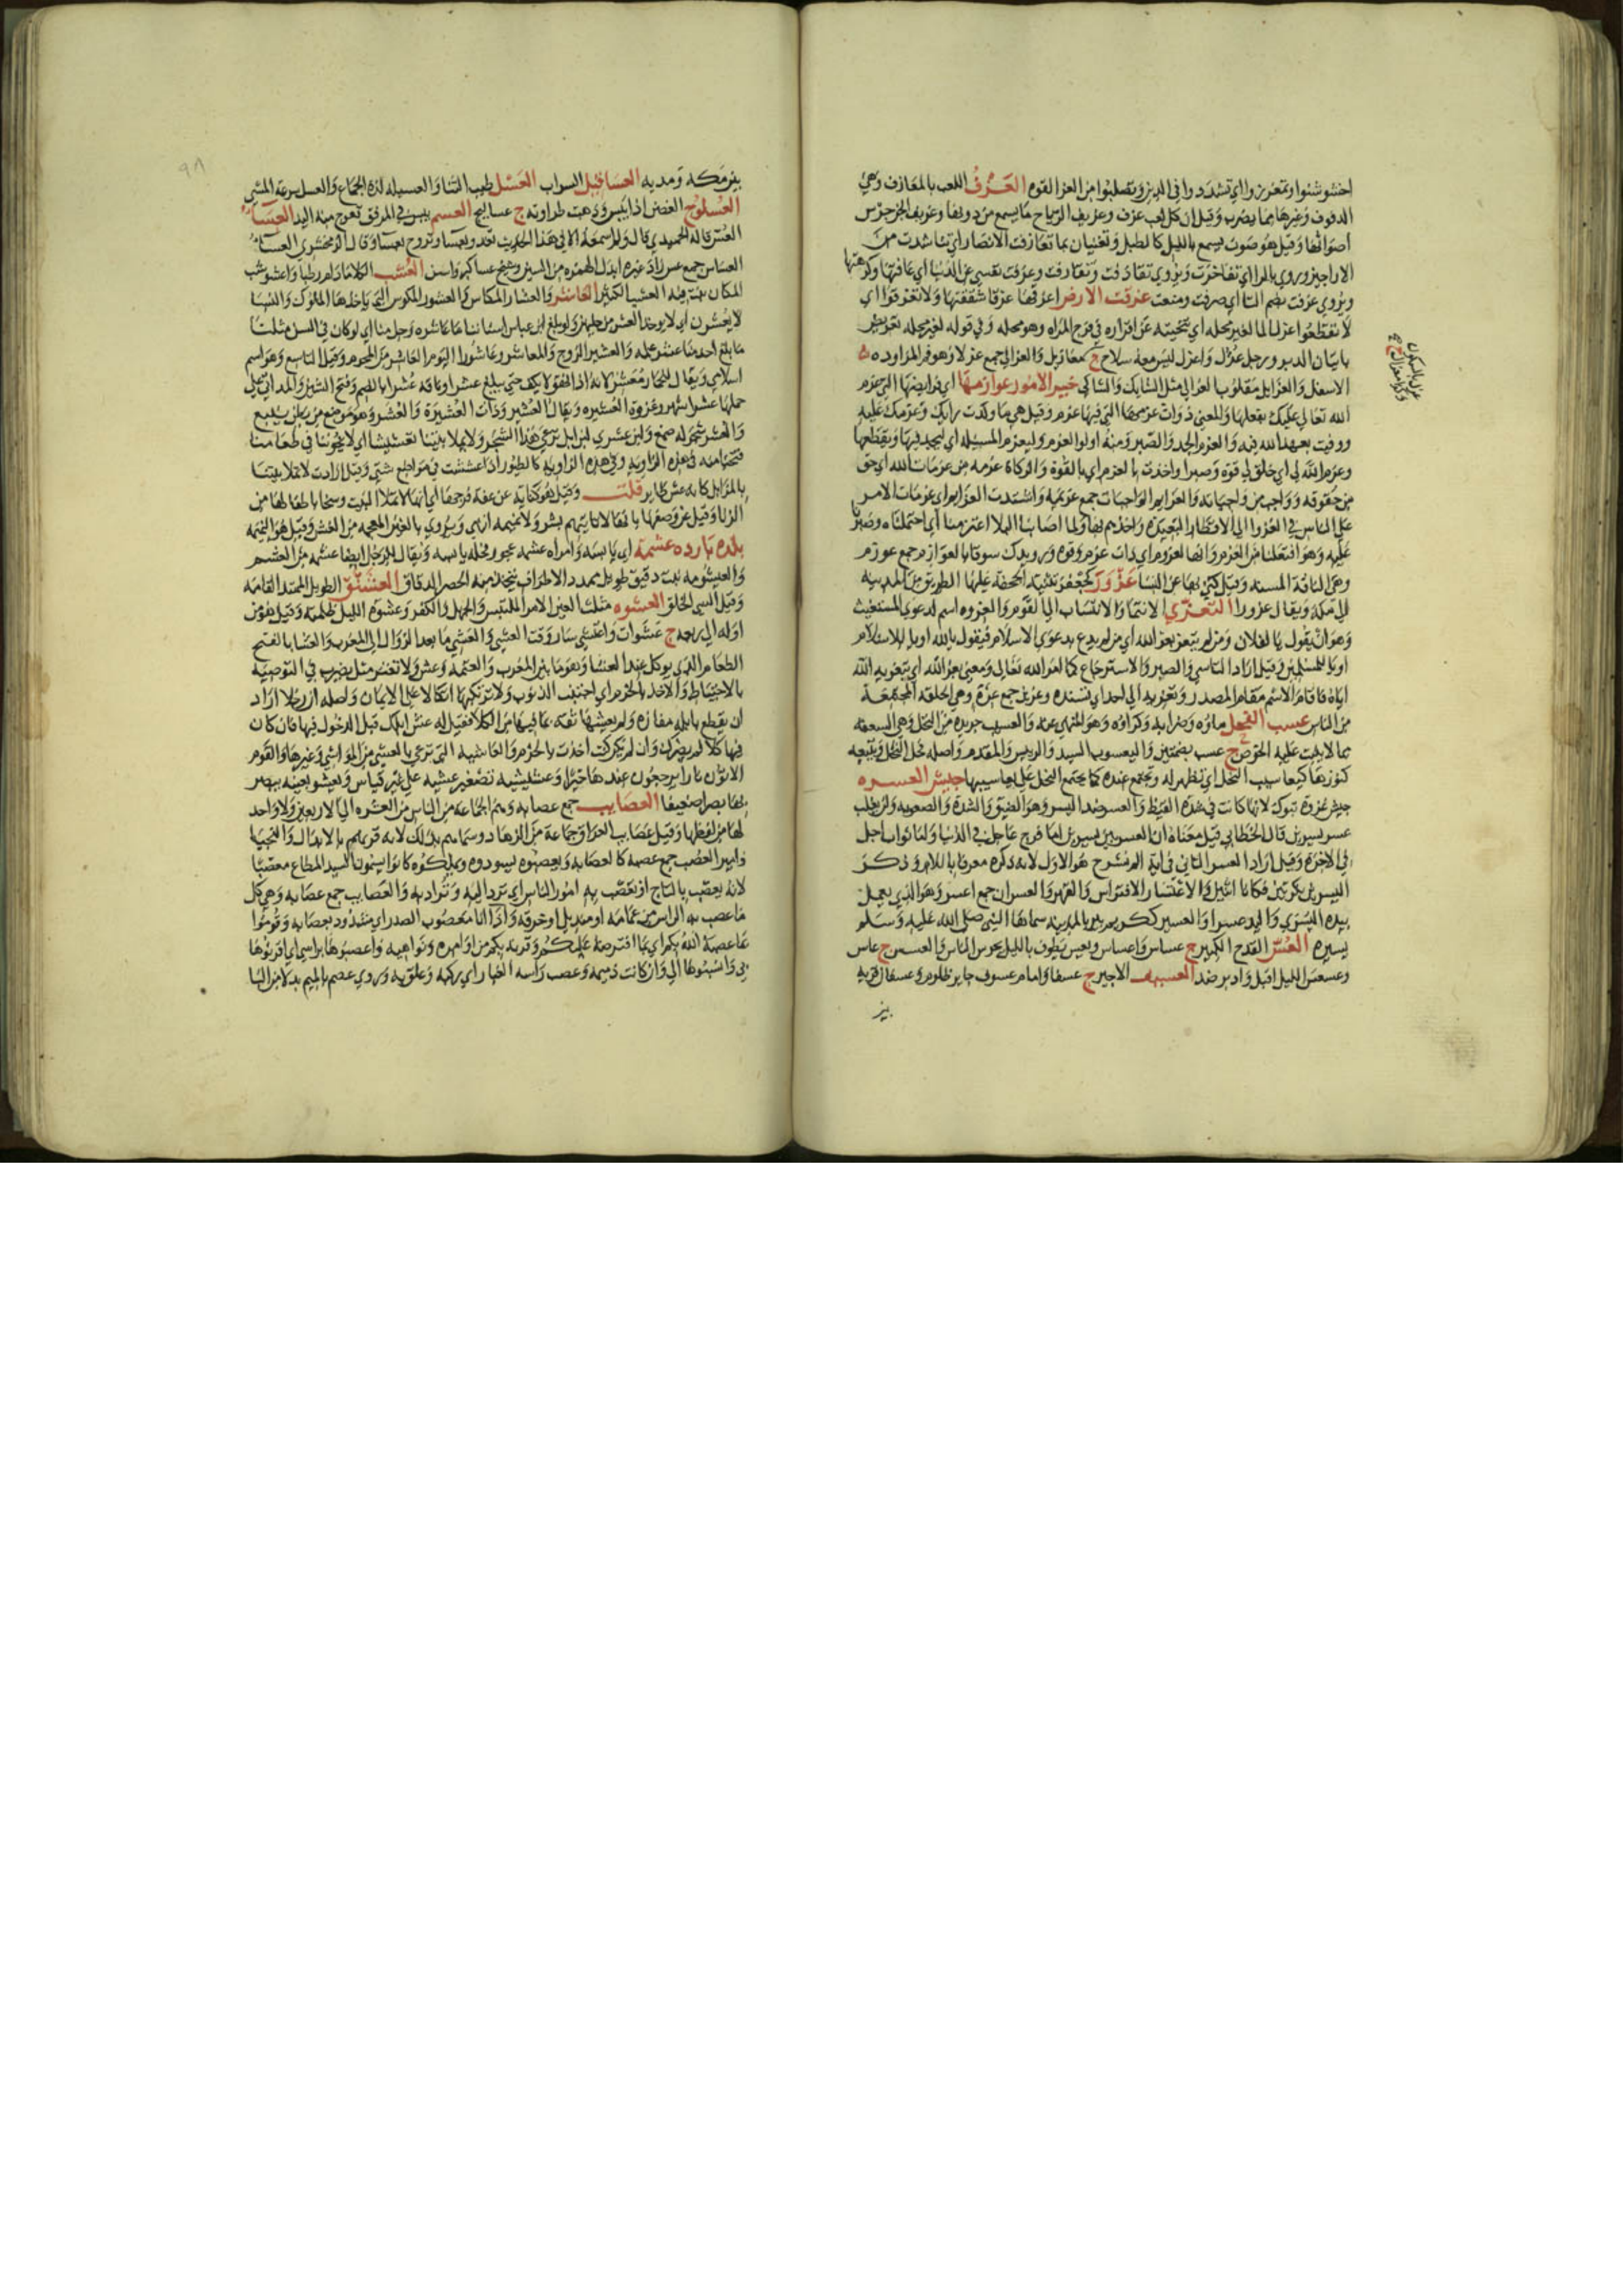 اخشوشنوا وتمعززوا اي تشددوا في الدين وتصلبوا من العز القوه العزف اللعب بالمعازف وهي
الدفوف وغيرها مما يضرب وقيل ان كل لعب عزف وعزيف الرياح ما يسمع من دويها وعزيف الجن جرس
اصواتها وقيل هو صوت يسمع بالليل كالطبل وتغنيان بما تعازفت الانصار اي تناشدت من
الاراجيز وروي بالراء اي تفاخرت ويروي تقاذفت وتقارفت وعزفت نفسي عن الدنيا اي عافتها وكرهتها
ويروي عزفت بضم التا اي صرفت ومنعت عزقت الارض اعزقها عزقا شققتها ولا تعزقوا اي
لا تقطعوا عزل الما لغير محله اي تنحيته عن اقراره في فرج المراه وهو محله وفي قوله لغير محله تعريض
باتيان الدبر ورجل عزل واعزل ليس معه سلاح ج معازيل والعزالي جمع عزلا وهو فم المزاده
الاسفل والعزايل مقلوب العزالي مثل الشايك والشاكي خير الامور عوازمها اي فرايضها التي عزم
الله تعالى عليك بفعلها والمعنى ذوات عزمها التي فيها عزم وقيل هي ما وكدت رايك وعزمك عليه
ووفيت بعهد الله فيه والعزم الجد والصبر ومنه اولوا العزم وليعزم المسئله اي ليجد فيها ويقطعها
وعزم الله لي اي خلق لي قوة وصبرا واخذت بالعزم اي بالقوة والزكاة عزمه من عزمات الله اي حق
من حقوقه وواجب من واجباته والعزايم الواجبات جمع عزيمه واشتدت العزايم اي عزمات الامر
على الناس في الغزو الى الاقطار البعيده واخذهم بها ولما اصابنا البلا اعتزمنا اي احتملناه وصبرنا
عليه وهو افتعلنا من العزم وانها لعزوم اي ذات عزم وقوه ورويدك سوقا بالعوازم جمع عوزم
وهي الناقة المسنه وقيل كني بها عن النسا عزور كجعفر ثنية الجحفة عليها الطريق من المدينه
الى مكه ويقال عزورا التعزي الانتما والانتساب الى القوم والعزوه اسم لدعوي المستغيث
وهو ان يقول يا لفلان ومن لم يتعز بعزا الله اي من لم يدع بدعوي الاسلام فيقول يا لله او يا للاسلام
او يا للمسلمين وقيل اراد التاسي والصبر والاسترجاع كما امر الله تعالى ومعنى بعزا الله اي بتعزيه الله
اياه فاقام الاسم مقام المصدر وتعزيه الى احد اي تسنده وعزين جمع عزة وهي الحلقه المجتمعة
من الناس عسب الفحل ماؤه وضرابه وكراؤه وهو المنهي عنه والعسيب جريده من النخل وهي السعفه
مما لا ينبت عليه الخوص ج عسب بضمتين واليعسوب السيد والرييس والمقدم واصله فحل النحل وتتبعه
كنوزها كيعاسيب النحل اي تظهر له وتجتمع عنده كما يجتمع النحل على يعاسيبها جيش العسره
جيش غزوة تبوك لانها كانت في شدة القيظ والعسر ضد اليسر وهو الضيق والشدة والصعوبه ولن يغلب
عسر يسرين قال الخطابي قيل معناه ان العسر بين يسرين اما فرج عاجل في الدنيا ولما ثواب اجل
في الاخرة وقيل اراد العسر الثاني في اية الم نشرح هو الاول لانه ذكره معرفا باللام وذكر
اليسرين نكرتين فكانا اثنين والاعتسار الافتراس والقهر والعسران جمع اعسر وهو الذي يعمل
بيده اليسري والمد عسرا والعسير ككريم بير بالمدينه سماها النبي صلى الله عليه وسلم
يسيره العس القدح الكبير ج عساس واعساس ويعس يطوف بالليل يحرس الناس والعسس ج عاس
وعسعس الليل اقبل وادبر ضد العسيف الاجير ج عسفا وامام عسوف جاير ظلوم وعسفان قرية
بين
بين مكه ومدينه العساقيل السراب العسل طيب الثنا والعسيله لذة الجماع والعسل سرعة المشي
العسلوج الغصن اذا يبس وذهبت طراوته ج عساليج العسم يبس في المرفق تعوج منه اليد العساء
العس قاله الحميدي قال ولم اسمعه الا في هذا الحديث تغدو بعسا وتروح بعسا وقال الزمخشري العساء
العساس جمع عس العشب الكلا ما دام رطبا واعشوشب
المكان نبت فيه العشب الكثير العاشر والعشار المكاس والعشور المكوس التي ياخذها الملوك والنسا
لا يعشرن اي لا يوخذ العشر من حليهن ولو بلغ ابن عباس اسناننا ما عاشره رجل منا اي لو كان في السن مثلنا
ما بلغ احد منا عشر علمه والعشير الزوج والمعاشر وعاشورا اليوم العاشر من المحرم وقيل التاسع وهو اسم
اسلامي
حملها عشرا شهر وغزوة العشيره ويقال لها العشير وذات العشيرة والعشر وهو موضع من بطن ينبع
والعشر شجر له صمغ ولبن عشري لبن ابل ترعى هذا الشجر ولا تملا بيتنا تعشيشا اي لا تخوننا في طعامنا
فتخبا منه في هذه الزاويه وفي هذه الزاويه كالطيور اذا عششت في مواضع شتى وقيل ارادت لا تملا بيتنا
بالمزابل كانه عش طاير قلت وقيل هو كناية عن عفة فرجها اي انها لا تملا البيت وسخا باطفالها من
الزنا وقيل عن وصفها بانها لا تاتيهم بشر ولا نميمه انتهى ويروي بالغين المعجمه من الغش وقيل هو النميمه
بلدة بارده عشمة اي يابسه وامراه عشمه عجوز قحله يابسه ويقال للرجل ايضا عشمه من العشم
والعيشومه نبت دقيق طويل محدد الاطراف يتخذ منه الحصر الدقاق العشنق الطويل الممتد القامه
وقيل السي الخلق العشوه مثلث العين الامر الملتبس والجهل والكفر وعشوة الليل ظلمته وقيل هو من
اوله الى ربعه ج عشوات واعتشي سار وقت العشي والعشي ما بعد الزوال الى المغرب والعشا بالفتح
الطعام الذي يوكل عند العشا وهو ما بين المغرب والعتمه وعش ولا تغتر مثل يضرب في التوصية
بالاحتياط والاخذ بالحزم اي اجتنب الذنوب ولا ترتكبها اتكالا على الايمان واصله ان رجلا اراد
ان يقطع بابله مفازه ولم يعشها ثقه بما فيها من الكلا فقيل له عش ابلك قبل الدخول فيها فان كان
فيها كلا لم يضرك وان لم يكن كنت اخذت بالحزم والعاشيه التي ترعى بالعشي من المواشي وغيرها والقوم
الاتون نارا يرجون عندها خيرا وعشيشيه تصغير عشيه على غير قياس ويعشو بعينه يبصر
بها بصرا ضعيفا العصايب جمع عصابه وهم الجماعة من الناس من العشره الى الاربعين ولا واحد
لها من لفظها وقيل عصايب العراق جماعة من الزهاد وسماهم بذلك لانه قرنهم بالابدال والنجبا
وامير العصب جمع عصبه كالعصابه ويعصبوه يسودوه ويملكوه كانوا يسمون السيد المطاع معصبا
لانه يعصب بالتاج او تعصب به امور الناس اي ترد اليه وتدار به والعصايب جمع عصابه وهي كل
ما عصب به الراس من عمامه او منديل او خرقه واذا انا معصوب الصدر اي مشدود بعصابه وقوموا
بما عصبه الله بكم اي بما افترضه عليكم وقرنه بكم من اوامره ونواهيه واعصبوها براسي اي اقرنوها
بي وانسبوها الي وان كانت ذميمه وعصب راسه الغبار اي ركبه وعلق به وروي عصم بالميم بدلا من البا